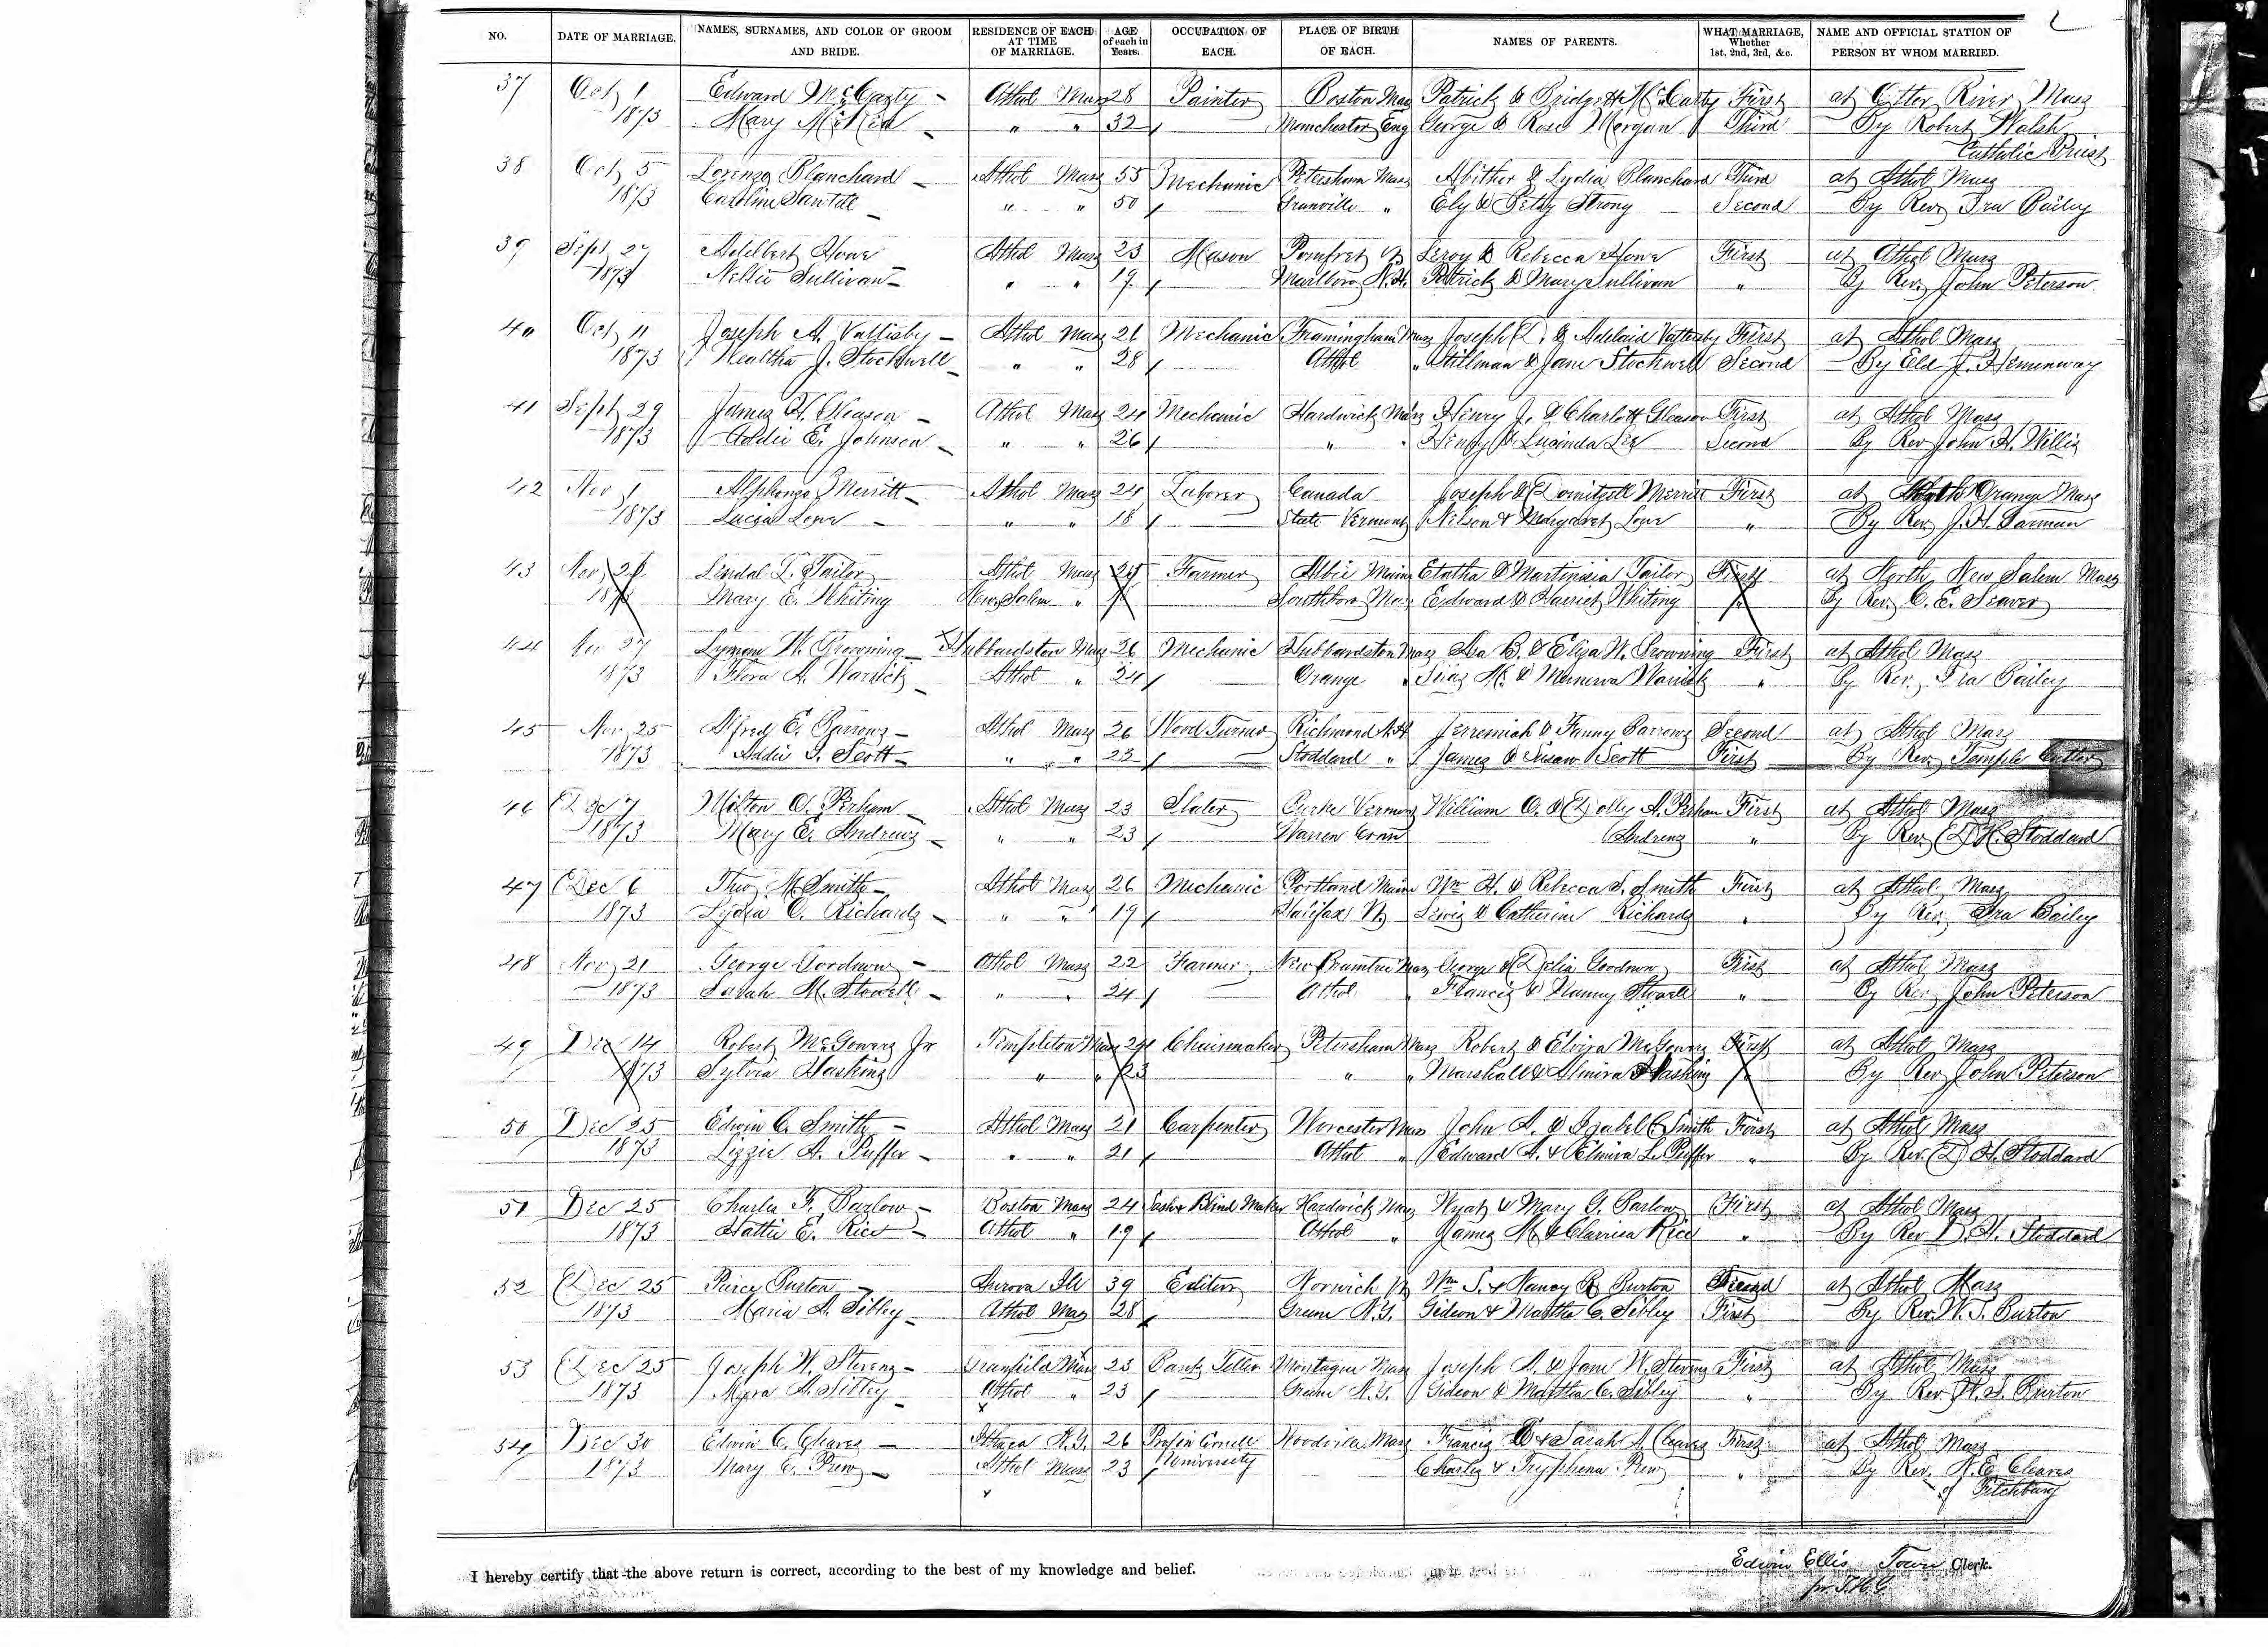 NO. DATE OF MARRIAGE. NAMES, SURNAMES, AND COLOR OF GROOM AND BRIDE. RESIDENCE OF EACH AT TIME OF MARRIAGE. AGE of each in Years. OCCUPATION OF EACH. PLACE OF BIRTH OF EACH. NAMES OF PARENTS. WHAT MARRIAGE, Whether 1st, 2nd, 3rd, &c. NAME AND OFFICIAL STATION OF PERSON BY WHOM MARRIED.
37 Oct 1 Edward McCarty - Athol Mass 28 Painter Boston Mass Patrick & Bridgett McCarty First at Otter River Mass
1873 Mary - " " 32 Manchester Eng George & Rose Morgan Third By Robert Walsh
Catholic Priest
38 Oct 5 Lorenzo Blanchard - Athol Mass 55 Mechanic Petersham Mass Abither & Lydia Blanchard Third at Athol Mass
1873 Caroline Sawtell - " " 50 Granville " Ely & Betsy Strong Second By Rev Ira Bailey
39 Sept 27 Adelbert Howe Athol Mass 23 Mason Pomfret Vt Leroy & Rebecca Howe First at Athol Mass
1873 Nellie Sullivan - " " 19 Marlboro N.H. Patrick & Mary Sullivan " By Rev John Peterson
40 Oct 11 Joseph A. Vattisby - Athol Mass 21 Mechanic Framingham Mass Joseph D. & Adelaid Vattesby First at Athol Mass
1873 Wealtha J. Stockwell - " " 28 Athol " Stillman & Jane Stockwell Second By Eld J. Hemenway
41 Sept 29 James H. Gleason - Athol Mass 24 Mechanic Hardwick Mass Henry J. & Charlott Gleason First at Athol Mass
1873 Addie E. Johnson - " " 26 " " Henry & Lucinda Lee Second By Rev John H. Willis
42 Nov 1 Alphonzo Merritt - Athol Mass 24 Laborer Canada Joseph & Domitzell Merritt First at Orange Mass
1873 Lucia Love - " " 18 State Vermont Nelson & Margaret Love " By Rev J. H. Garman
43 Nov Lendal L. Tailor Athol Mass 25 Farmer Maine Etatha & Tailor First at North New Salem Mass
1873 Mary E. Whiting New Salem " Southboro Mass Edward & Harriet Whiting " By Rev. C. E. Seaver
44 Nov 27 Lyman W. Browning - Hubbardston Mass 26 Mechanic Hubbardston Mass Asa B. & Eliza W. Browning First at Athol Mass
1873 Flora A. Warrick - Athol " 24 Orange " Silas M. & Minerva Warrick " By Rev. Ira Bailey
45 Nov 25 Alfred E. Barrows - Athol Mass 26 Wood Turner Richmond N.H Jerremiah & Fanny Barrows Second at Athol Mass
1873 Addie I. Scott - " " 23 Stoddard " James & Susan Scott First By Rev Temple Cutler
46 Dec 7 Milton O. Perham - Athol Mass 23 Slater Burke Vermont William O. & Dolly A. Perham First at Athol Mass
1873 Mary E. Andrews - " " 23 Warren Conn Andrews " By Rev. D. H. Stoddard
47 Dec 6 Theo. M Smith - Athol Mass 26 Mechanic Portland Maine Wm H. & Rebecca S. Smith First at Athol Mass
1873 Lydia C. Richards - " " 19 Halifax Vt Lewis & Catherine Richards " By Rev. Ira Bailey
48 Nov 21 George Goodnow - Athol Mass 22 Farmer New Braintree Mass George & Delia Goodnow First at Athol Mass
1873 Sarah M. Stowell - " " 24 Athol " Francis & Nanny Stowell " By Rev John Peterson
49 Dec 14 Robert McGowers Jr Templeton Mass 24 Chairmaker Petersham Mass Robert & Elvira McGowers First at Athol Mass
1873 Sylvia Haskins " " 23 " " Marshall & Almira Haskins " By Rev John Peterson
50 Dec 25 Edwin C. Smith - Athol Mass 21 Carpenter Worcester Mass John A. & Izabel C. Smith First at Athol Mass
1873 Lizzie A. Puffer - " " 21 Athol " Edward A. & Elmira L. Puffer " By Rev. D. H. Stoddard
51 Dec 25 Charles F. Barlow - Boston Mass 24 Sash & Blind Maker Hardwick Mass Wyatt & Mary G. Barlow First at Athol Mass
1873 Hattie E. Rice - Athol " 19 Athol " James M. & Clarrisa Rice " By Rev D. H. Stoddard
52 Dec 25 Pierce Burton - Aurora Ill 39 Editor Norwich Vt Wm S. & Nancy R. Burton Second at Athol Mass
1873 Maria A. Sibley - Athol Mass 28 Greene N.Y. Gideon & Martha C. Sibley First By Rev. W. S. Burton
53 Dec 25 Joseph W. Stevens - Greenfield Mass 23 Bank Teller Montague Mass Joseph A. & Jane W. Stevens First at Athol Mass
1873 Myra A. Sibley - Athol " 23 Greene N.Y. Gideon & Martha C. Sibley " By Rev W. S. Burton
54 Dec 30 Edwin C. Cleaves - Ithaca N.Y. 26 Prof in Cornell University Woodville Mass Francis D & Sarah A. Cleaves First at Athol Mass
1873 Mary E. Prew - Athol Mass 23 Charles & Tryphena Prew " By Rev. N. E. Cleaves
of Fitchburg
I hereby certify that the above return is correct, according to the best of my knowledge and belief. Edwin Ellis Town Clerk.
pr. T.H.G.